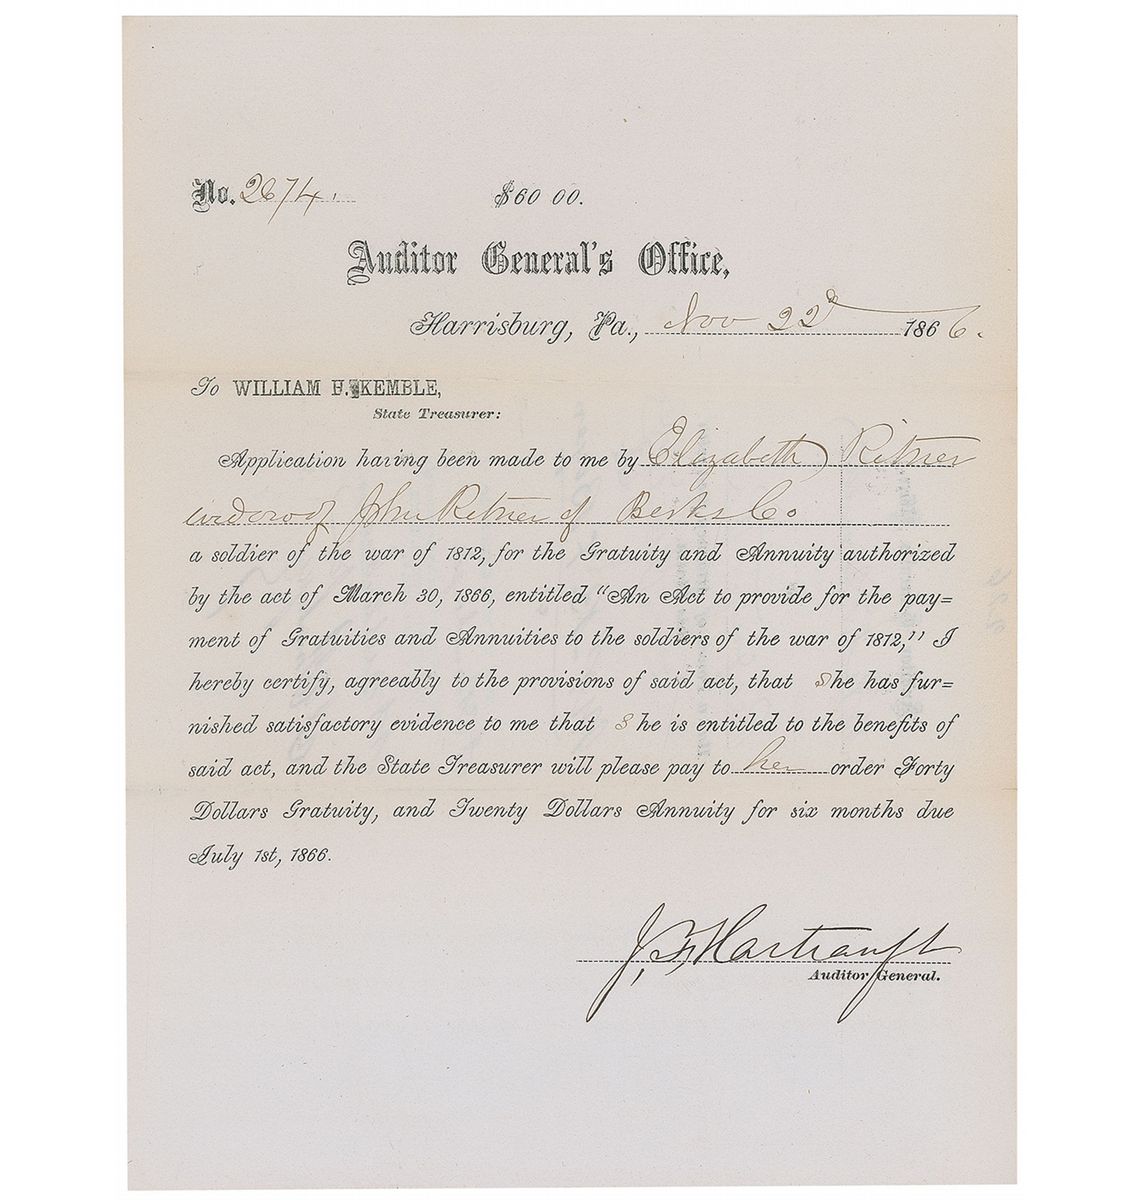 No. 2674. $60 00.
Auditor General's Office,
Harrisburg, Pa., Nov 22d 1866.
To WILLIAM H. KEMBLE,
State Treasurer:
Application having been made to me by Elizabeth Ritner
widow of John Ritner of Berks Co
a soldier of the war of 1812, for the Gratuity and Annuity authorized
by the act of March 30, 1866, entitled "An Act to provide for the pay=
ment of Gratuities and Annuities to the soldiers of the war of 1812," I
hereby certify, agreeably to the provisions of said act, that She has fur=
nished satisfactory evidence to me that S he is entitled to the benefits of
said act, and the State Treasurer will please pay to her order Forty
Dollars Gratuity, and Twenty Dollars Annuity for six months due
July 1st, 1866.
J. F. Hartranft
Auditor General.